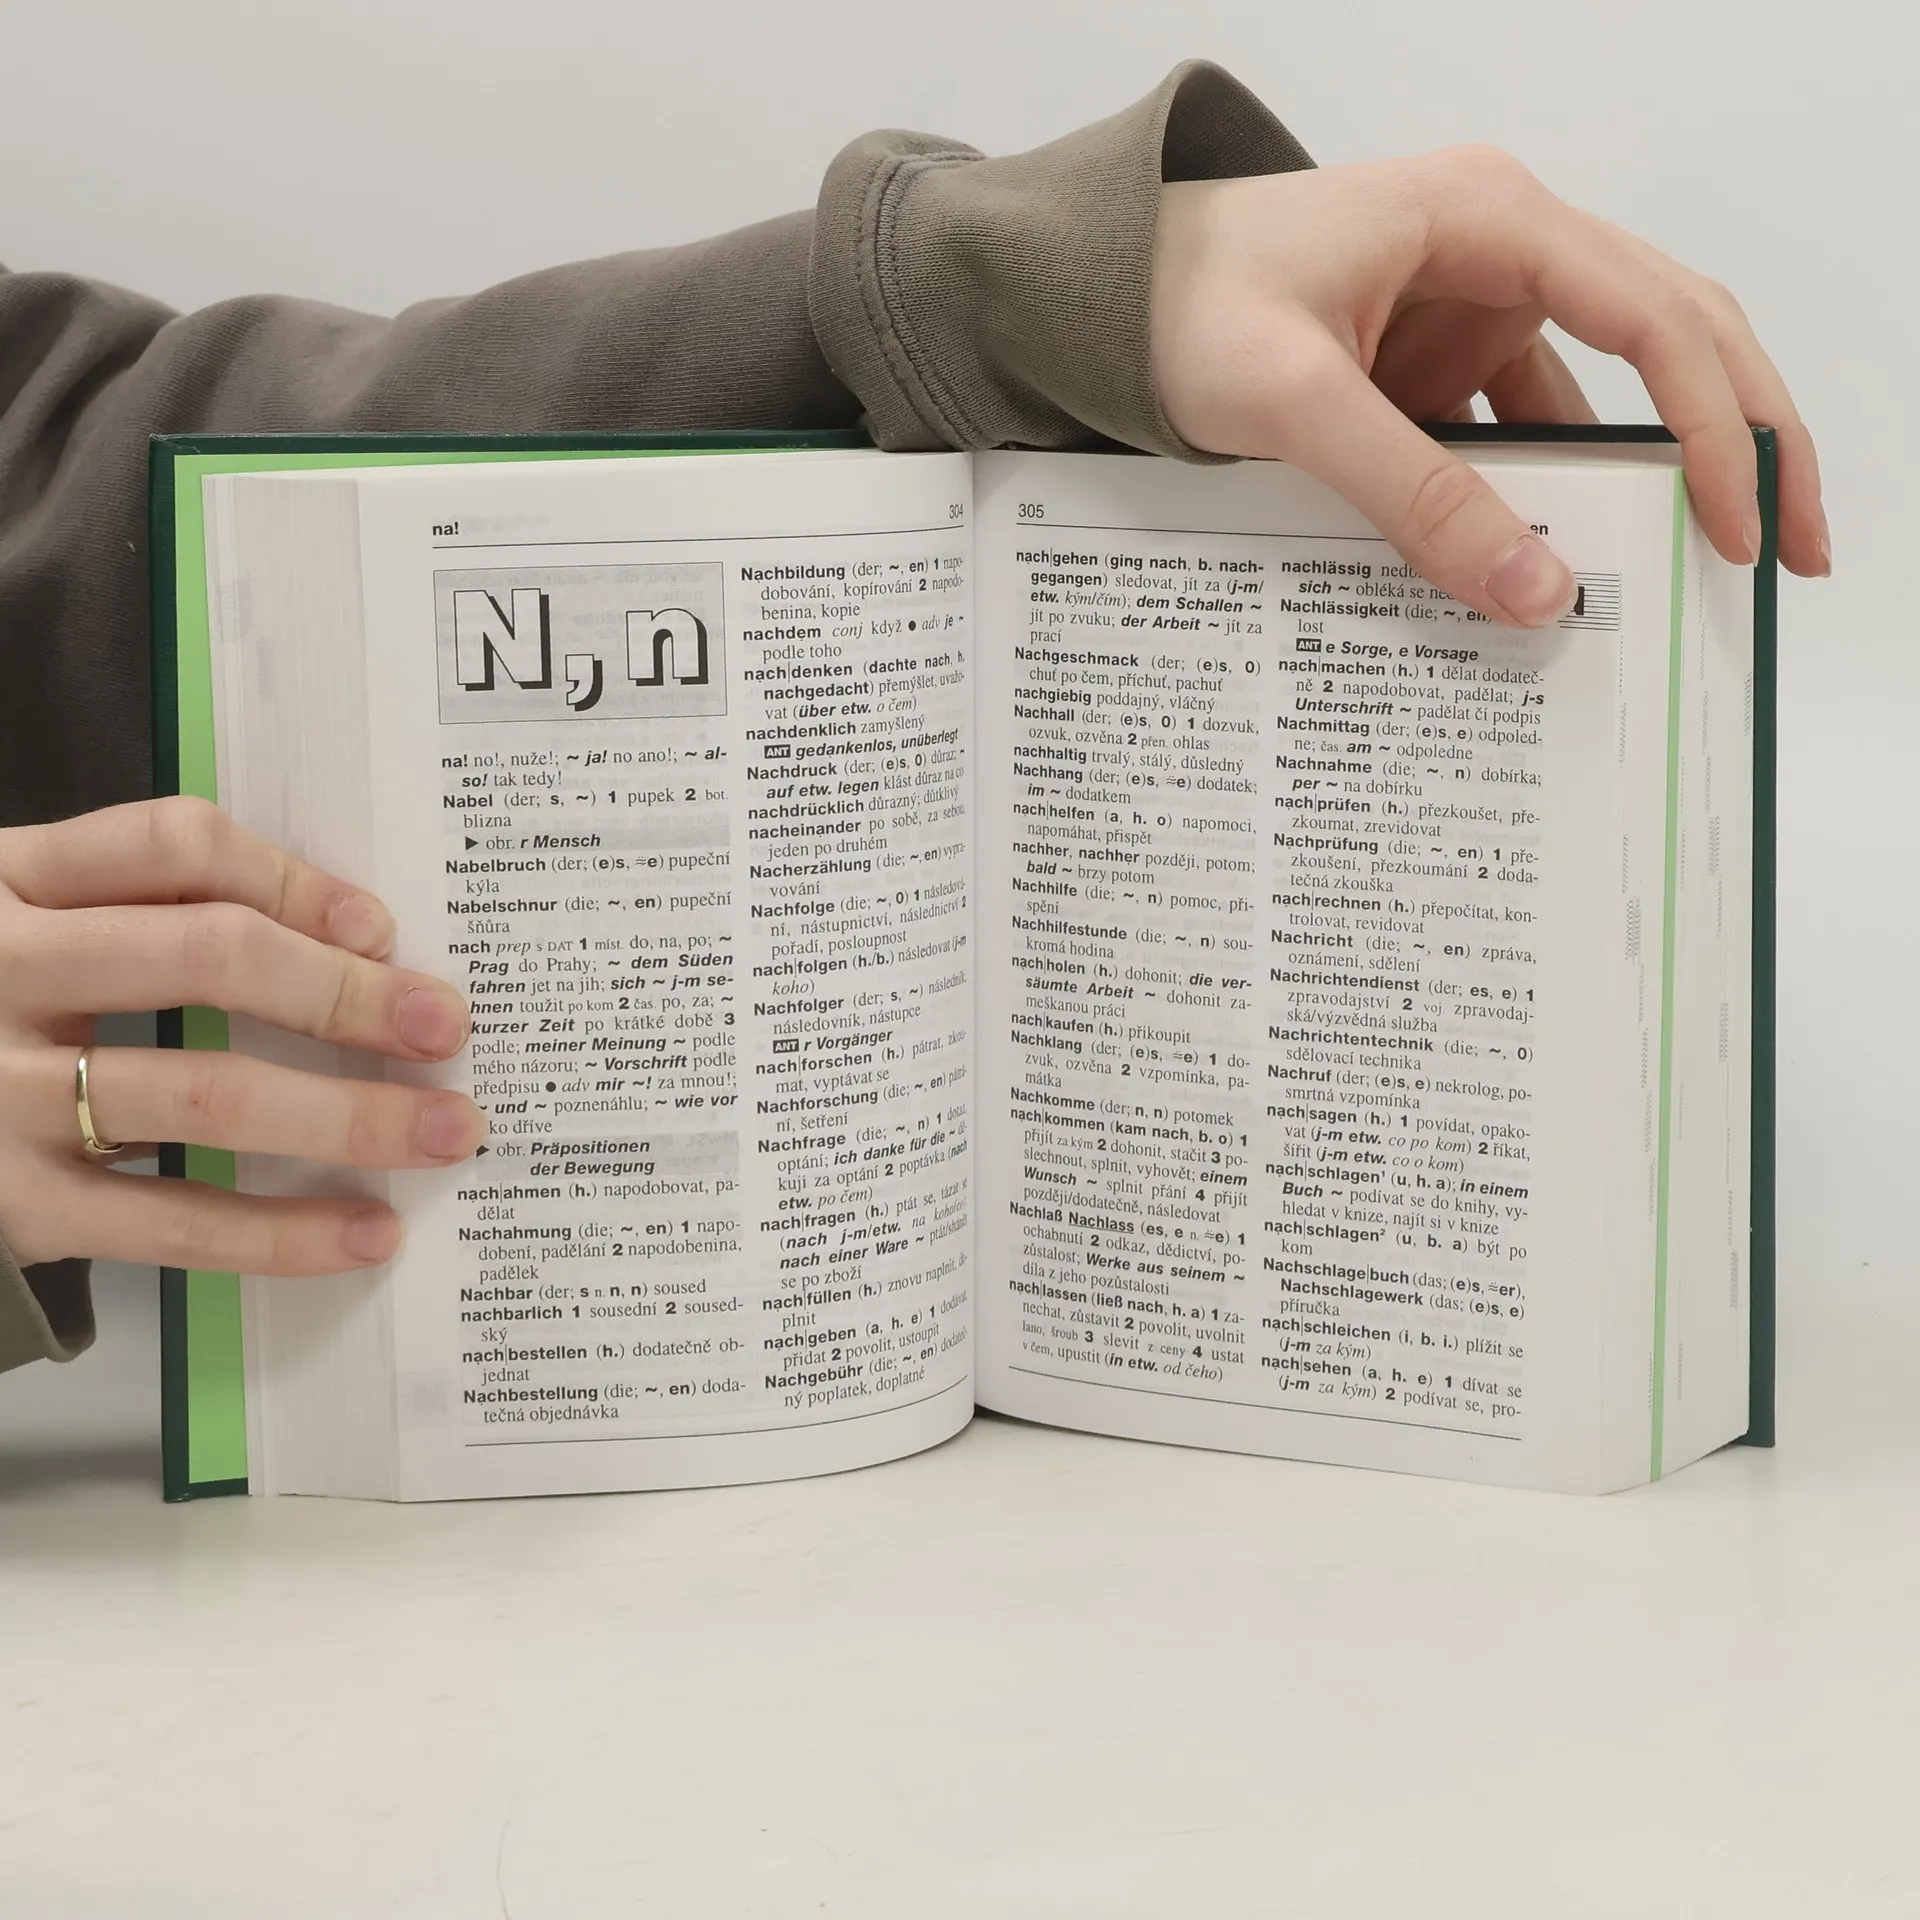 na!
304
N, n
na! no!, nuže!; ~ ja! no ano!; ~ al-
so! tak tedy!
Nabel (der; s, ~) 1 pupek 2 bot.
blizna
▶ obr. r Mensch
Nabelbruch (der; (e)s, ≈e) pupeční
kýla
Nabelschnur (die; ~, en) pupeční
šňůra
nach prep s DAT 1 míst. do, na, po; ~
Prag do Prahy; ~ dem Süden
fahren jet na jih; sich ~ j-m se-
hnen toužit po kom 2 čas. po, za; ~
kurzer Zeit po krátké době 3
podle; meiner Meinung ~ podle
mého názoru; ~ Vorschrift podle
předpisu ● adv mir ~! za mnou!;
~ und ~ poznenáhlu; ~ wie vor
ko dříve
▶ obr. Präpositionen
der Bewegung
nach|ahmen (h.) napodobovat, pa-
dělat
Nachahmung (die; ~, en) 1 napo-
dobení, padělání 2 napodobenina,
padělek
Nachbar (der; s n. n, n) soused
nachbarlich 1 sousední 2 soused-
ský
nach|bestellen (h.) dodatečně ob-
jednat
Nachbestellung (die; ~, en) doda-
tečná objednávka
Nachbildung (der; ~, en) 1 napo-
dobování, kopírování 2 napodo-
benina, kopie
nachdem conj když ● adv je ~
podle toho
nach|denken (dachte nach, h.
nachgedacht) přemýšlet, uvažo-
vat (über etw. o čem)
nachdenklich zamyšlený
ANT gedankenlos, unüberlegt
Nachdruck (der; (e)s, 0) důraz; ~
auf etw. legen klást důraz na co
nachdrücklich důrazný; důtklivý
nacheinander po sobě, za sebou,
jeden po druhém
Nacherzählung (die; ~, en) vypra-
vování
Nachfolge (die; ~, 0) 1 následová-
ní, nástupnictví, následnictví 2
pořadí, posloupnost
nach|folgen (h./b.) následovat (j-m
koho)
Nachfolger (der; s, ~) následník,
následovník, nástupce
ANT r Vorgänger
nach|forschen (h.) pátrat, zkou-
mat, vyptávat se
Nachforschung (die; ~, en) pátrá-
ní, šetření
Nachfrage (die; ~, n) 1 dotaz,
optání; ich danke für die ~ dě-
kuji za optání 2 poptávka (nach
etw. po čem)
nach|fragen (h.) ptát se, tázat se
(nach j-m/etw. na koho/co);
nach einer Ware ~ ptát/shánět
se po zboží
nach|füllen (h.) znovu naplnit, do-
plnit
nach|geben (a, h. e) 1 dodávat,
přidat 2 povolit, ustoupit
Nachgebühr (die; ~, en) dodateč-
ný poplatek, doplatné
305
en
nach|gehen (ging nach, b. nach-
gegangen) sledovat, jít za (j-m/
etw. kým/čím); dem Schallen ~
jít po zvuku; der Arbeit ~ jít za
prací
Nachgeschmack (der; (e)s, 0)
chuť po čem, příchuť, pachuť
nachgiebig poddajný, vláčný
Nachhall (der; (e)s, 0) 1 dozvuk,
ozvuk, ozvěna 2 přen. ohlas
nachhaltig trvalý, stálý, důsledný
Nachhang (der; (e)s, ≈e) dodatek;
im ~ dodatkem
nach|helfen (a, h. o) napomoci,
napomáhat, přispět
nachher, nachher později, potom;
bald ~ brzy potom
Nachhilfe (die; ~, n) pomoc, při-
spění
Nachhilfestunde (die; ~, n) sou-
kromá hodina
nach|holen (h.) dohonit; die ver-
säumte Arbeit ~ dohonit za-
meškanou práci
nach|kaufen (h.) přikoupit
Nachklang (der; (e)s, ≈e) 1 do-
zvuk, ozvěna 2 vzpomínka, pa-
mátka
Nachkomme (der; n, n) potomek
nach|kommen (kam nach, b. o) 1
přijít za kým 2 dohonit, stačit 3 po-
slechnout, splnit, vyhovět; einem
Wunsch ~ splnit přání 4 přijít
později/dodatečně, následovat
Nachlaß Nachlass (es, e n. ≈e) 1
ochabnutí 2 odkaz, dědictví, po-
zůstalost; Werke aus seinem ~
díla z jeho pozůstalosti
nach|lassen (ließ nach, h. a) 1 za-
nechat, zůstavit 2 povolit, uvolnit
lano, šroub 3 slevit z ceny 4 ustat
v čem, upustit (in etw. od čeho)
nachlässig
sich ~ obléká se
Nachlässigkeit (die; ~, en)
lost
ANT e Sorge, e Vorsage
nach|machen (h.) 1 dělat dodateč-
ně 2 napodobovat, padělat; j-s
Unterschrift ~ padělat čí podpis
Nachmittag (der; (e)s, e) odpoled-
ne; čas. am ~ odpoledne
Nachnahme (die; ~, n) dobírka;
per ~ na dobírku
nach|prüfen (h.) přezkoušet, pře-
zkoumat, zrevidovat
Nachprüfung (die; ~, en) 1 pře-
zkoušení, přezkoumání 2 doda-
tečná zkouška
nach|rechnen (h.) přepočítat, kon-
trolovat, revidovat
Nachricht (die; ~, en) zpráva,
oznámení, sdělení
Nachrichtendienst (der; es, e) 1
zpravodajství 2 voj. zpravodaj-
ská/výzvědná služba
Nachrichtentechnik (die; ~, 0)
sdělovací technika
Nachruf (der; (e)s, e) nekrolog, po-
smrtná vzpomínka
nach|sagen (h.) 1 povídat, opako-
vat (j-m etw. co po kom) 2 říkat,
šířit (j-m etw. co o kom)
nach|schlagen¹ (u, h. a); in einem
Buch ~ podívat se do knihy, vy-
hledat v knize, najít si v knize
nach|schlagen² (u, b. a) být po
kom
Nachschlage|buch (das; (e)s, ≈er),
Nachschlagewerk (das; (e)s, e)
příručka
nach|schleichen (i, b. i.) plížit se
(j-m za kým)
nach|sehen (a, h. e) 1 dívat se
(j-m za kým) 2 podívat se, pro-